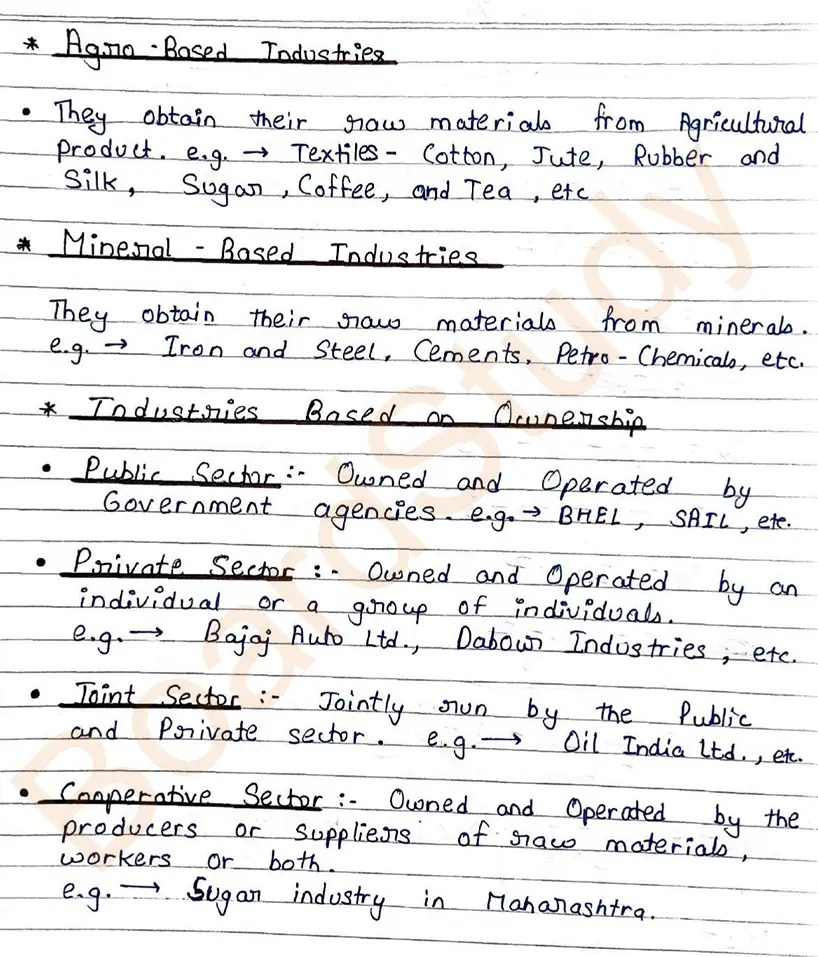 * Agro-Based Industries
• They obtain their raw materials from Agricultural
Product. e.g. → Textiles - Cotton, Jute, Rubber and
Silk, Sugar, Coffee, and Tea, etc
* Mineral - Based Industries
They obtain their raw materials from minerals.
e.g. → Iron and Steel, Cements, Petro-Chemicals, etc.
* Industries Based on Ownership
• Public Sector :- Owned and Operated by
Government agencies. e.g. → BHEL, SAIL, etc.
• Private Sector :- Owned and Operated by an
individual or a group of individuals.
e.g. → Bajaj Auto Ltd., Dabour Industries, etc.
• Joint Sector :- Jointly run by the Public
and Private sector. e.g. → Oil India Ltd., etc.
• Cooperative Sector :- Owned and Operated by the
producers or suppliers of raw materials,
workers or both.
e.g. → Sugar industry in Maharashtra.
BoardStudy